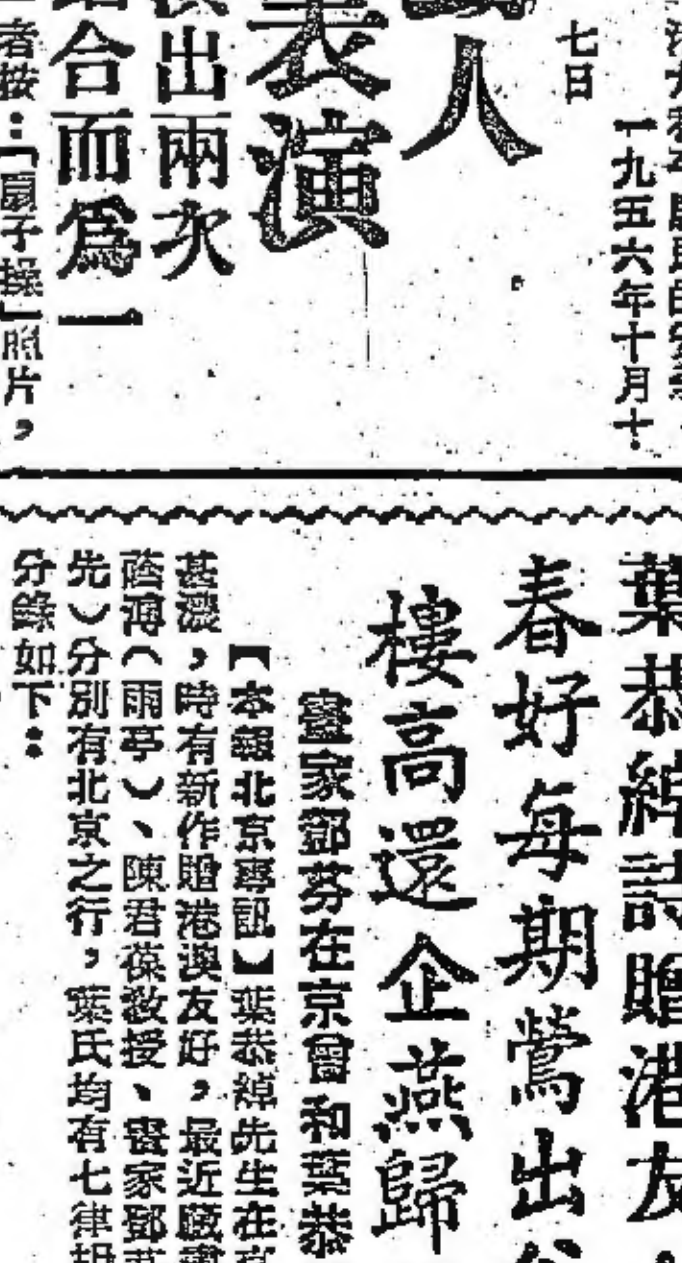 一九五六年十月十
七日
人
表演
出兩次
合而爲一
者按：「扇子操」照片，
葉恭綽詩贈港友
春好每期鶯出
樓高還企燕歸
畫家鄧芬在京曾和葉恭
【本報北京專訊】葉恭綽先生在
甚濃，時有新作贈港澳友好，最近
蔭溥（雨亭）、陳君葆敎授、畫家鄧
先）分別有北京之行，葉氏均有七律
分錄如下：